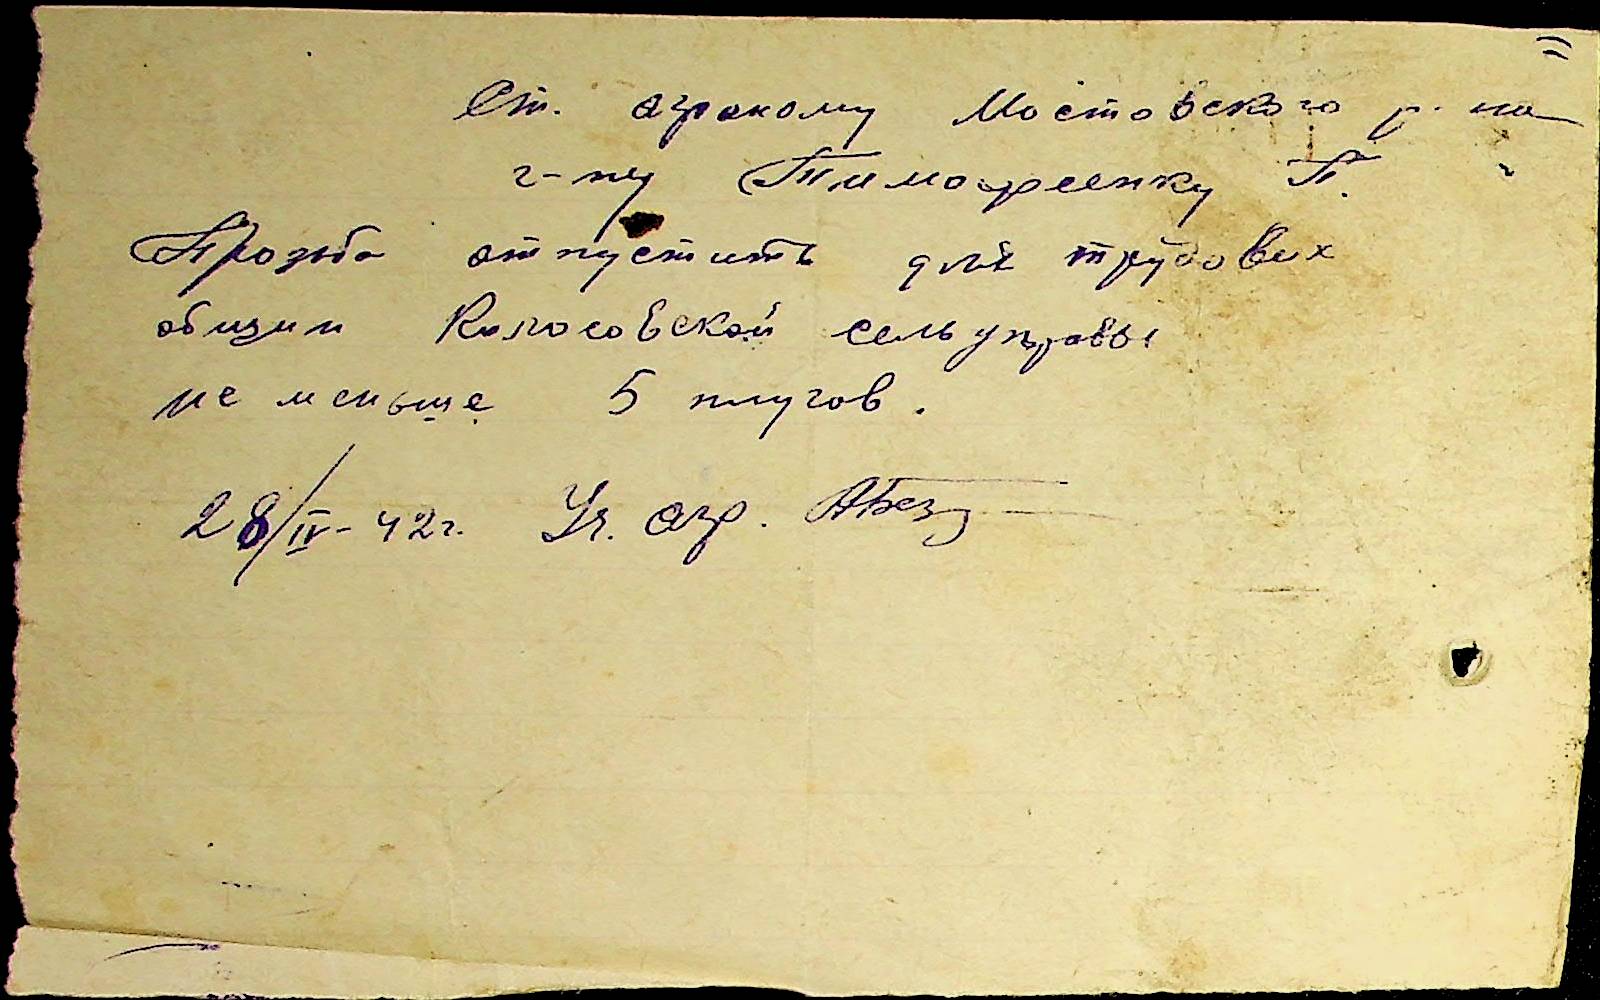 Ст. агроному Мостовского р-на
г-ну Тимофеенку П.
Прозьба отпустить для трудовых
общин Колосовской сельуправы
не меньше 5 плугов.
28/IV-42г. Уч. агр.